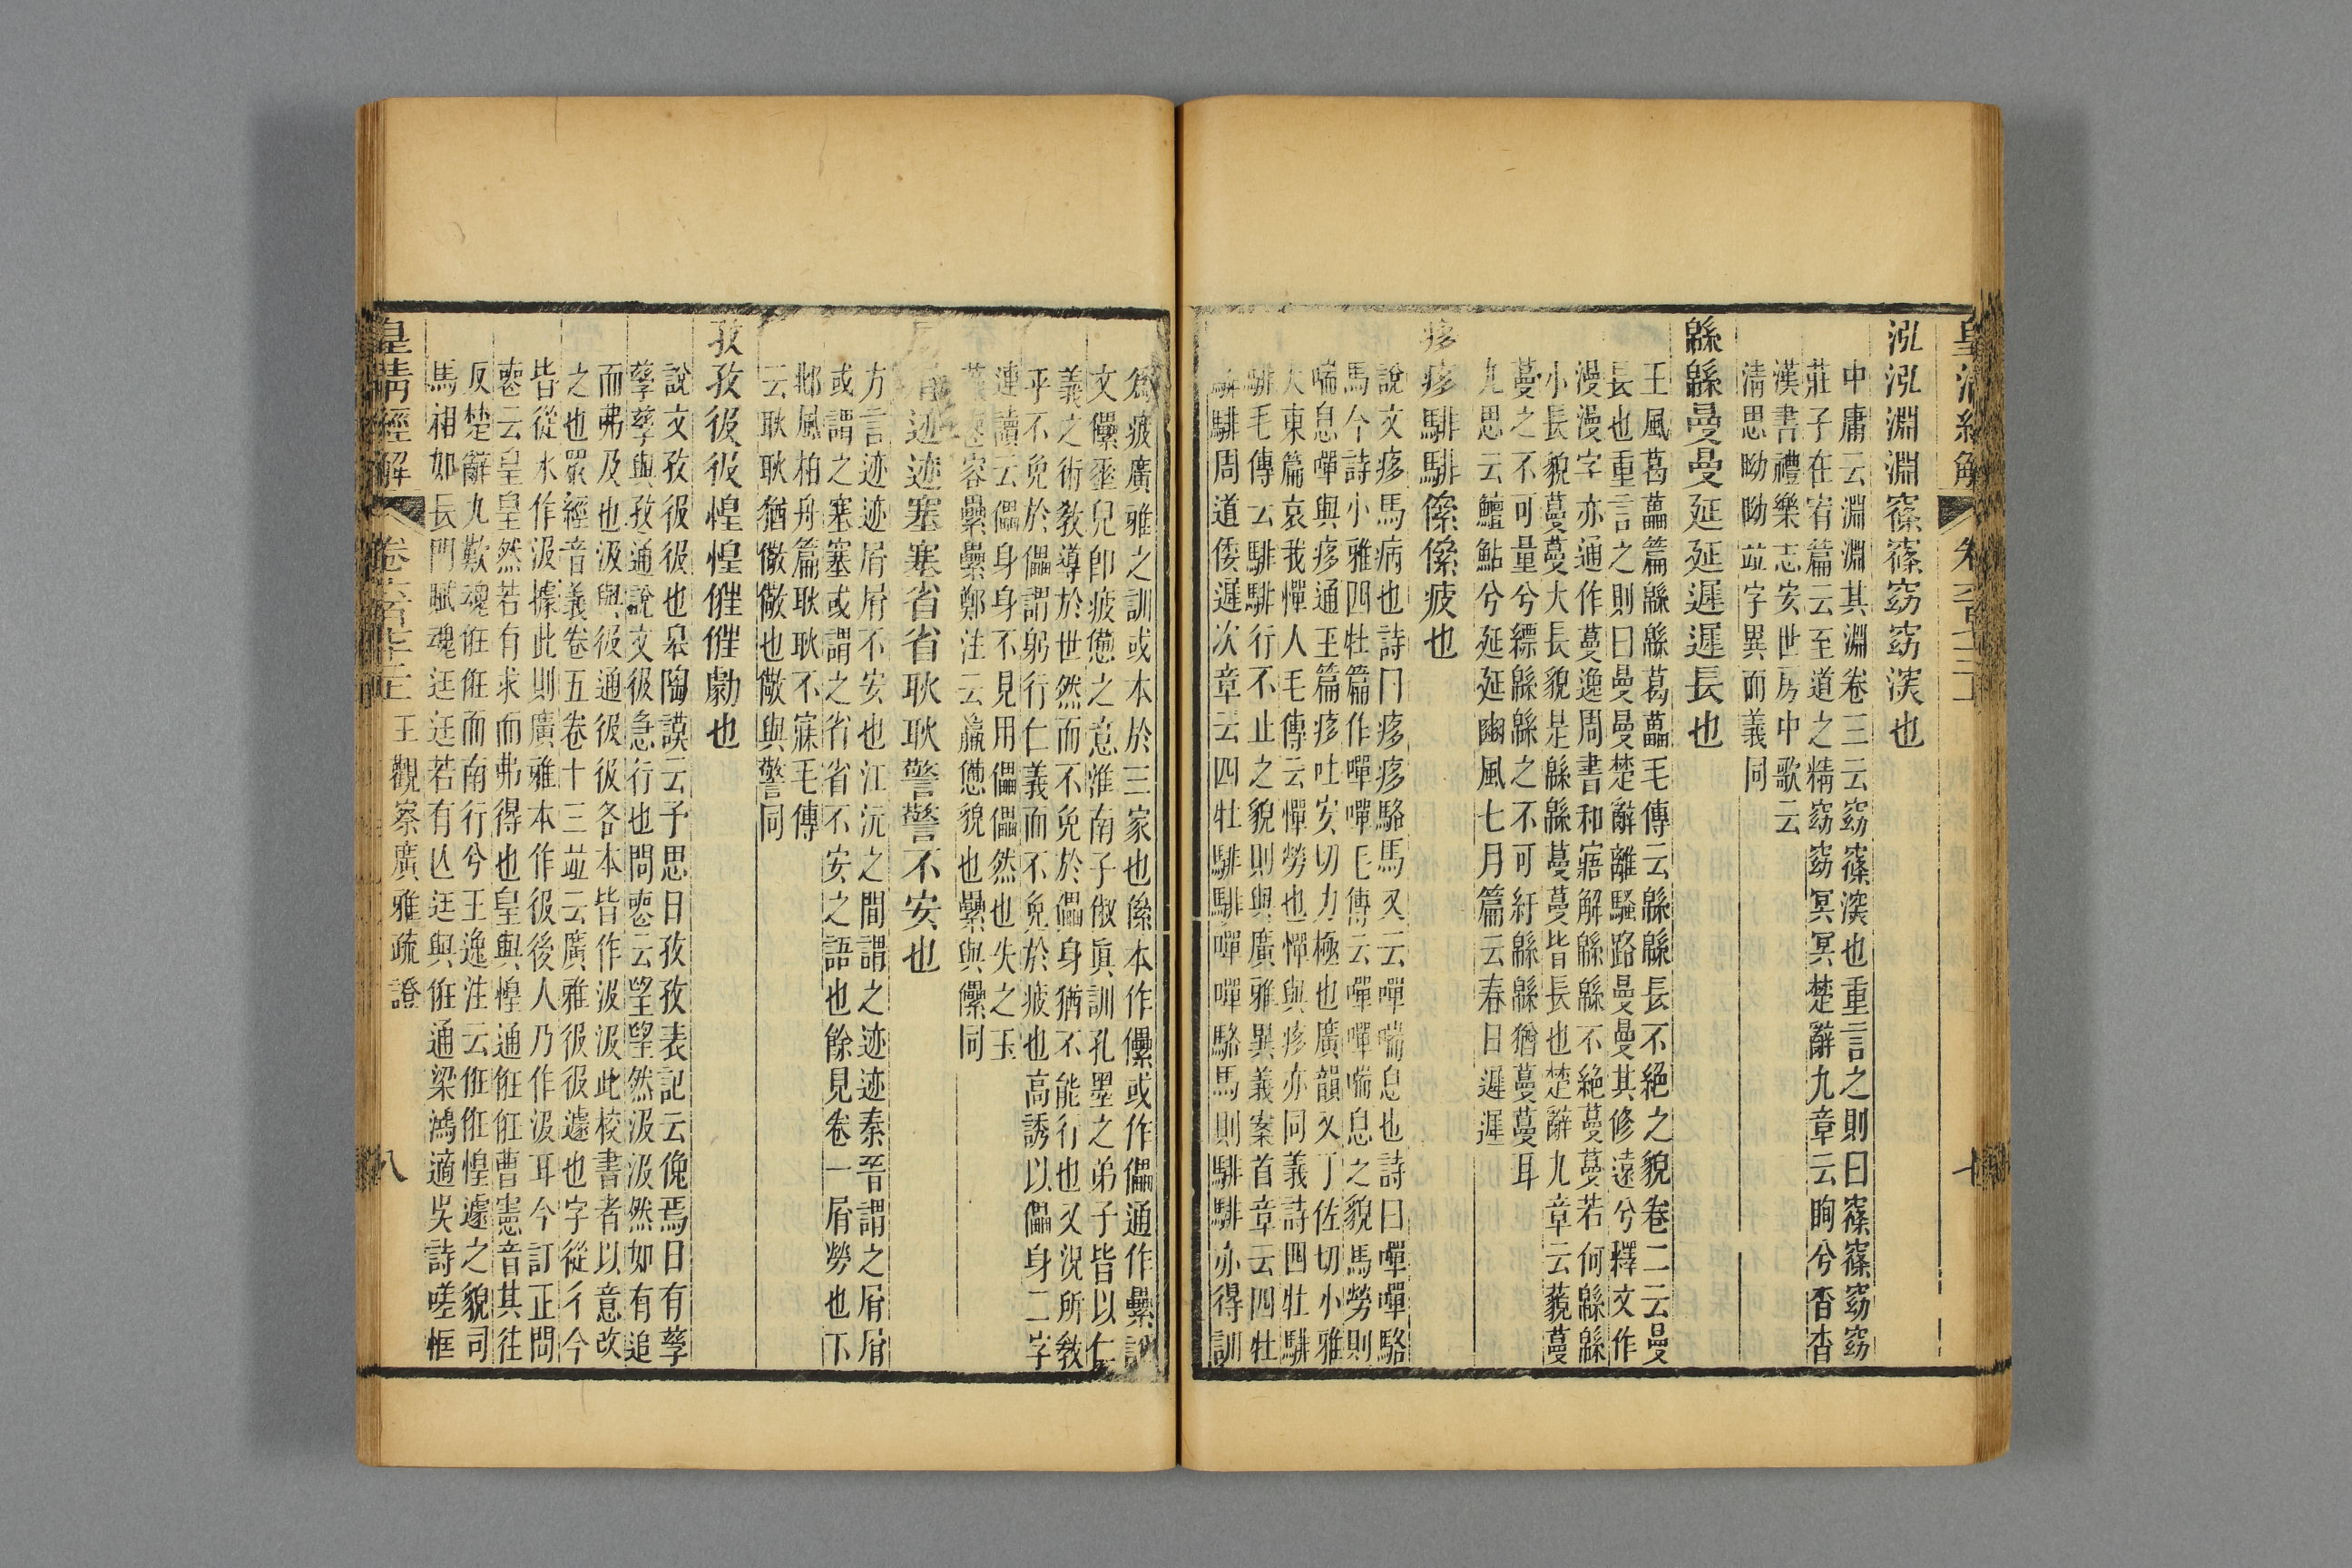 泓泓淵淵窱窱窈窈深也
中庸云淵淵其淵卷三云窈窱深也重言之則曰窱窱窈窈
莊子在宥篇云至道之精窈窈冥冥楚辭九章云眴兮杳杳
漢書禮樂志安世房中歌云
清思眑眑竝字異而義同
緜緜曼曼延延遲遲長也
王風葛藟篇緜緜葛藟毛傳云緜緜長不絕之貌卷二云曼
長也重言之則曰曼曼楚辭離騷路曼曼其修遠兮釋文作
漫漫字亦通作蔓逸周書和寤解緜緜不絕蔓蔓若何緜緜
小長貌蔓蔓大長貌是緜緜蔓蔓皆長也楚辭九章云藐蔓
蔓之不可量兮縹緜緜之不可紆緜緜猶蔓蔓耳
九思云鱣鮎兮延延豳風七月篇云春日遲遲
痑痑騑騑傫傫疲也
說文痑馬病也詩曰痑痑駱馬又云嘽喘息也詩曰嘽嘽駱
馬今詩小雅四牡篇作嘽嘽毛傳云嘽嘽喘息之貌馬勞則
喘息嘽與痑通玉篇痑吐安切力極也廣韻又丁佐切小雅
大東篇哀我憚人毛傳云憚勞也憚與痑亦同義詩四牡騑
騑毛傳云騑騑行不止之貌則與廣雅異義案首章云四牡
騑騑周道倭遲次章云四牡騑騑嘽嘽駱馬則騑騑亦得訓
爲疲廣雅之訓或本於三家也傫本作儽或作儡通作纍說
文儽垂皃卽疲憊之意淮南子俶眞訓孔墨之弟子皆以仁
義之術敎導於世然而不免於儡身猶不能行也又況所敎
乎不免於儡謂躬行仁義而不免於疲也高誘以儡身二字
連讀云儡身身不見用儡儡然也失之玉
藻喪容纍纍鄭注云羸憊貌也纍與儽同
屑屑迹迹塞塞省省耿耿警警不安也
方言迹迹屑屑不安也江沅之間謂之迹迹秦晉謂之屑屑
或謂之塞塞或謂之省省不安之語也餘見卷一屑勞也下
邶風柏舟篇耿耿不寐毛傳
云耿耿猶儆儆也儆與警同
孜孜彶彶惶惶㒀㒀勮也
說文孜彶彶也皋陶謨云予思日孜孜表記云俛焉日有孳
孳孳與孜通說文彶急行也問喪云望望然汲汲然如有追
而弗及也汲與彶通彶彶各本皆作汲汲此校書者以意改
之也眾經音義卷五卷十三竝云廣雅彶彶遽也字從彳今
皆從水作汲據此則廣雅本作彶後人乃作汲耳今訂正問
喪云皇皇然若有求而弗得也皇與惶通㒀㒀曹憲音其往
反楚辭九歎魂俇俇而南行兮王逸注云俇俇惶遽之貌司
馬相如長門賦魂迋迋若有亾迋與俇通梁鴻適吳詩嗟恇
皇清經解
王觀察廣雅疏證
八